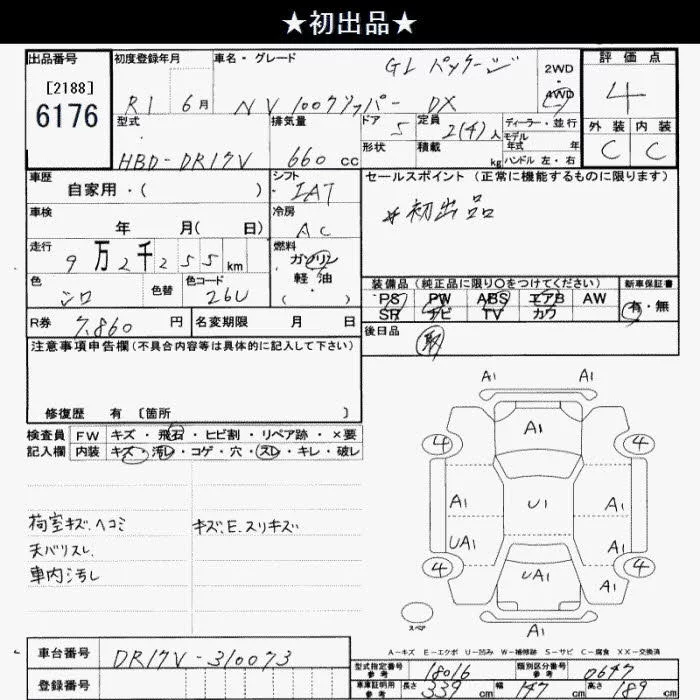 ★初出品★
出品番号
[2188]
6176
初度登録年月
R1 6月
車名・グレード
GL パッケージ
NV100クリッパー DX
2WD
4WD
評価点
4
外装 内装
C C
型式
HBD-DR17V
排気量
660 cc
ドア
5
定員
2(4)人
ディーラー・並行
モデル
年式 年
形状
積載
kg
ハンドル 左・右
車歴
自家用・( )
シフト
IAT
セールスポイント (正常に機能するものに限ります)
#初出品
車検
年 月( 日)
冷房
AC
走行
9万2千255km
燃料
ガソリン
軽油
・
( )
色
シロ
色替
色コード
26U
装備品 (純正品に限り○をつけてください)
PS PW ABS エアB AW
SR ナビ TV カワ
新車保証書
有・無
R券
7,860 円
名変期限 月 日
後日品
取
注意事項申告欄 (不具合内容等は具体的に記入して下さい)
修復歴 有 〔箇所 〕
検査員
記入欄
FW キズ・飛石・ヒビ割・リペア跡・×要
内装 キズ・汚レ・コゲ・穴・スレ・キレ・破レ
荷室キズ.ヘコミ
キズ、E.スリキズ
天バリスレ.
車内汚レ
A1 A1
A1
4 4
A1 U1 A1
UA1 A1
4 UA1 A1 4
スペア
A1
A-キズ E-エクボ U-凹み W-補修跡 S-サビ C-腐食 XX-交換済
車台番号
DR17V-310073
登録番号
型式指定番号
参考
18016
類別区分番号
参考
0647
車庫証明用
参考
長さ 339 cm 幅 147 cm 高さ 189 cm